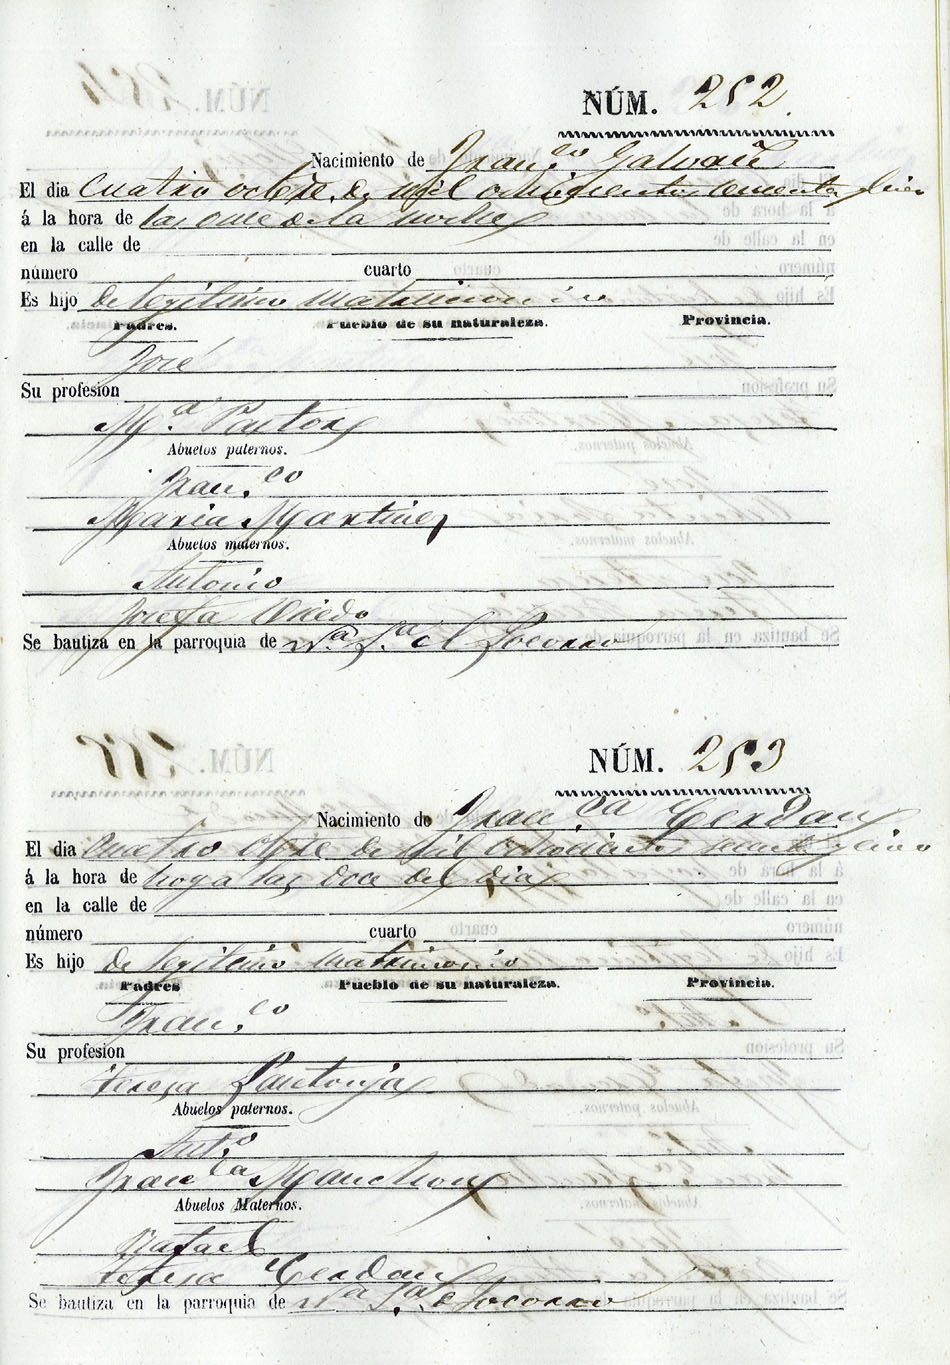 NÚM. 252.
Nacimiento de Fran.co Galvañ
El dia Cuatro octbre. de mil ochocientos sesenta y cinco
á la hora de las once de la noche
en la calle de
número cuarto
Es hijo de legitimo matrimonio
Padres. Pueblo de su naturaleza. Provincia.
José
Su profesion
M.a Pastor
Abuelos paternos.
Fran.co
Maria Martinez
Abuelos maternos.
Antonio
Josefa Oviedo
Se bautiza en la parroquia de N.a S.a del Socorro
NÚM. 253
Nacimiento de Fran.ca Cerdan
El dia Cuatro de mil ochocientos sesenta y cinco
á la hora de hoy a las doce del dia
en la calle de
número cuarto
Es hijo de legitimo matrimonio
Padres Pueblo de su naturaleza. Provincia.
Fran.co
Su profesion
Teresa Pantoja
Abuelos paternos.
Ant.o
Fran.ca Manchon
Abuelos Maternos.
Rafael
Teresa Cerdan
Se bautiza en la parroquia de N.a S.a d Socorro